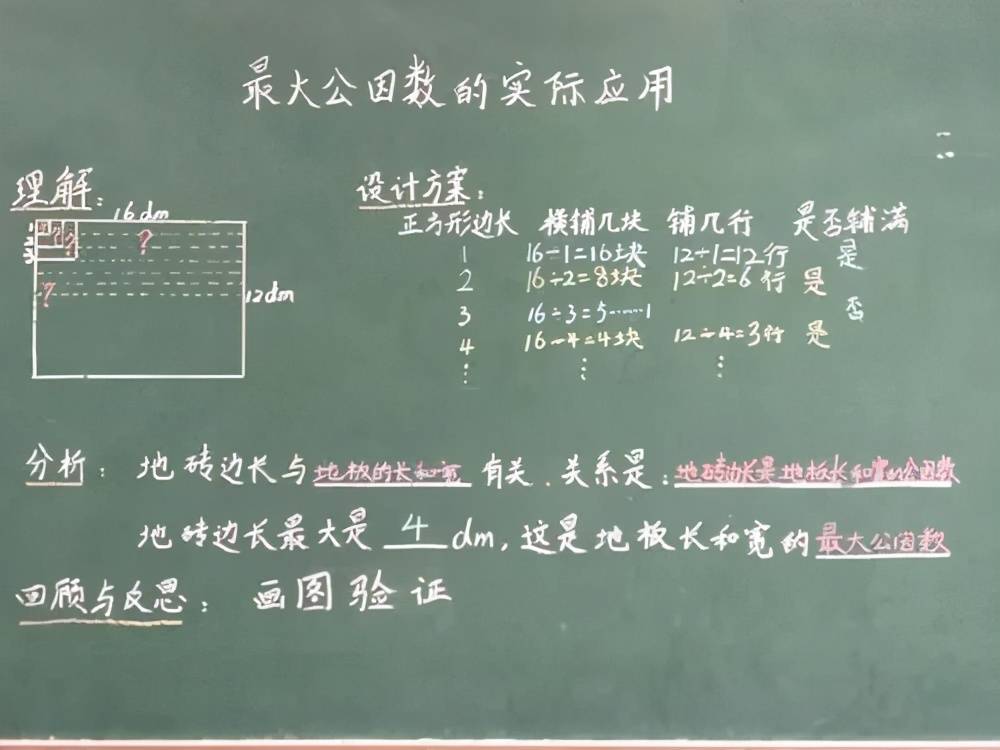 最大公因数的实际应用
理解：
16dm
1
2
3
?
?
?
12dm
设计方案：
正方形边长 横铺几块 铺几行 是否铺满
1 16÷1=16块 12÷1=12行 是
2 16÷2=8块 12÷2=6行 是
3 16÷3=5……1 否
4 16÷4=4块 12÷4=3行 是
⋮ ⋮ ⋮
分析：地砖边长与地板的长和宽有关．关系是：地砖边长是地板长和宽的公因数
地砖边长最大是 4 dm，这是地板长和宽的最大公因数
回顾与反思：画图验证